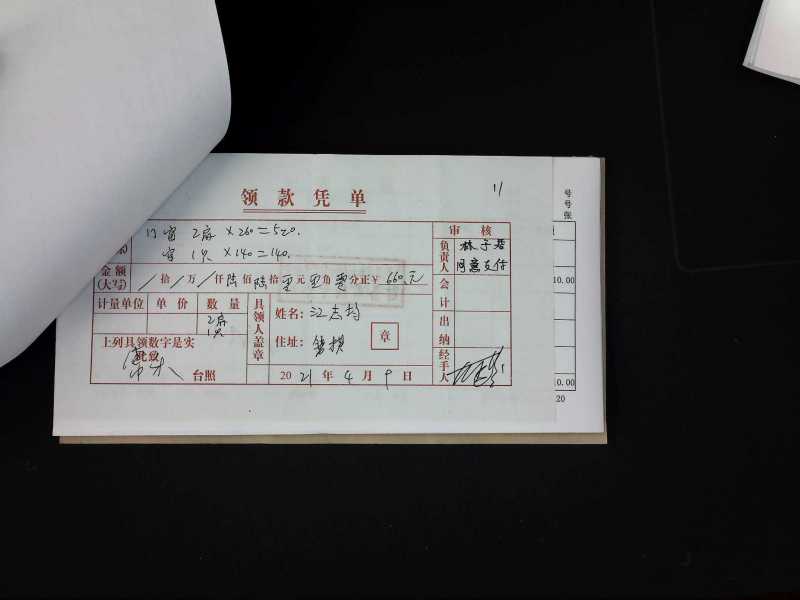 领款凭单
11
号
号
张
门窗 2扇 ×260=520.
窗 1只 ×140=140.
审核
负责人
林子君
同意支付
金额
(大写)
/拾/万/仟陆佰陆拾零元零角零分正¥660元
10.00
会计
计量单位 单价 数量
2扇
1只
具领人盖章
姓名:江志均
住址:
章
出纳
上列具领数字是实
此致
台照
2021年4月9日
经手人
10.00
20